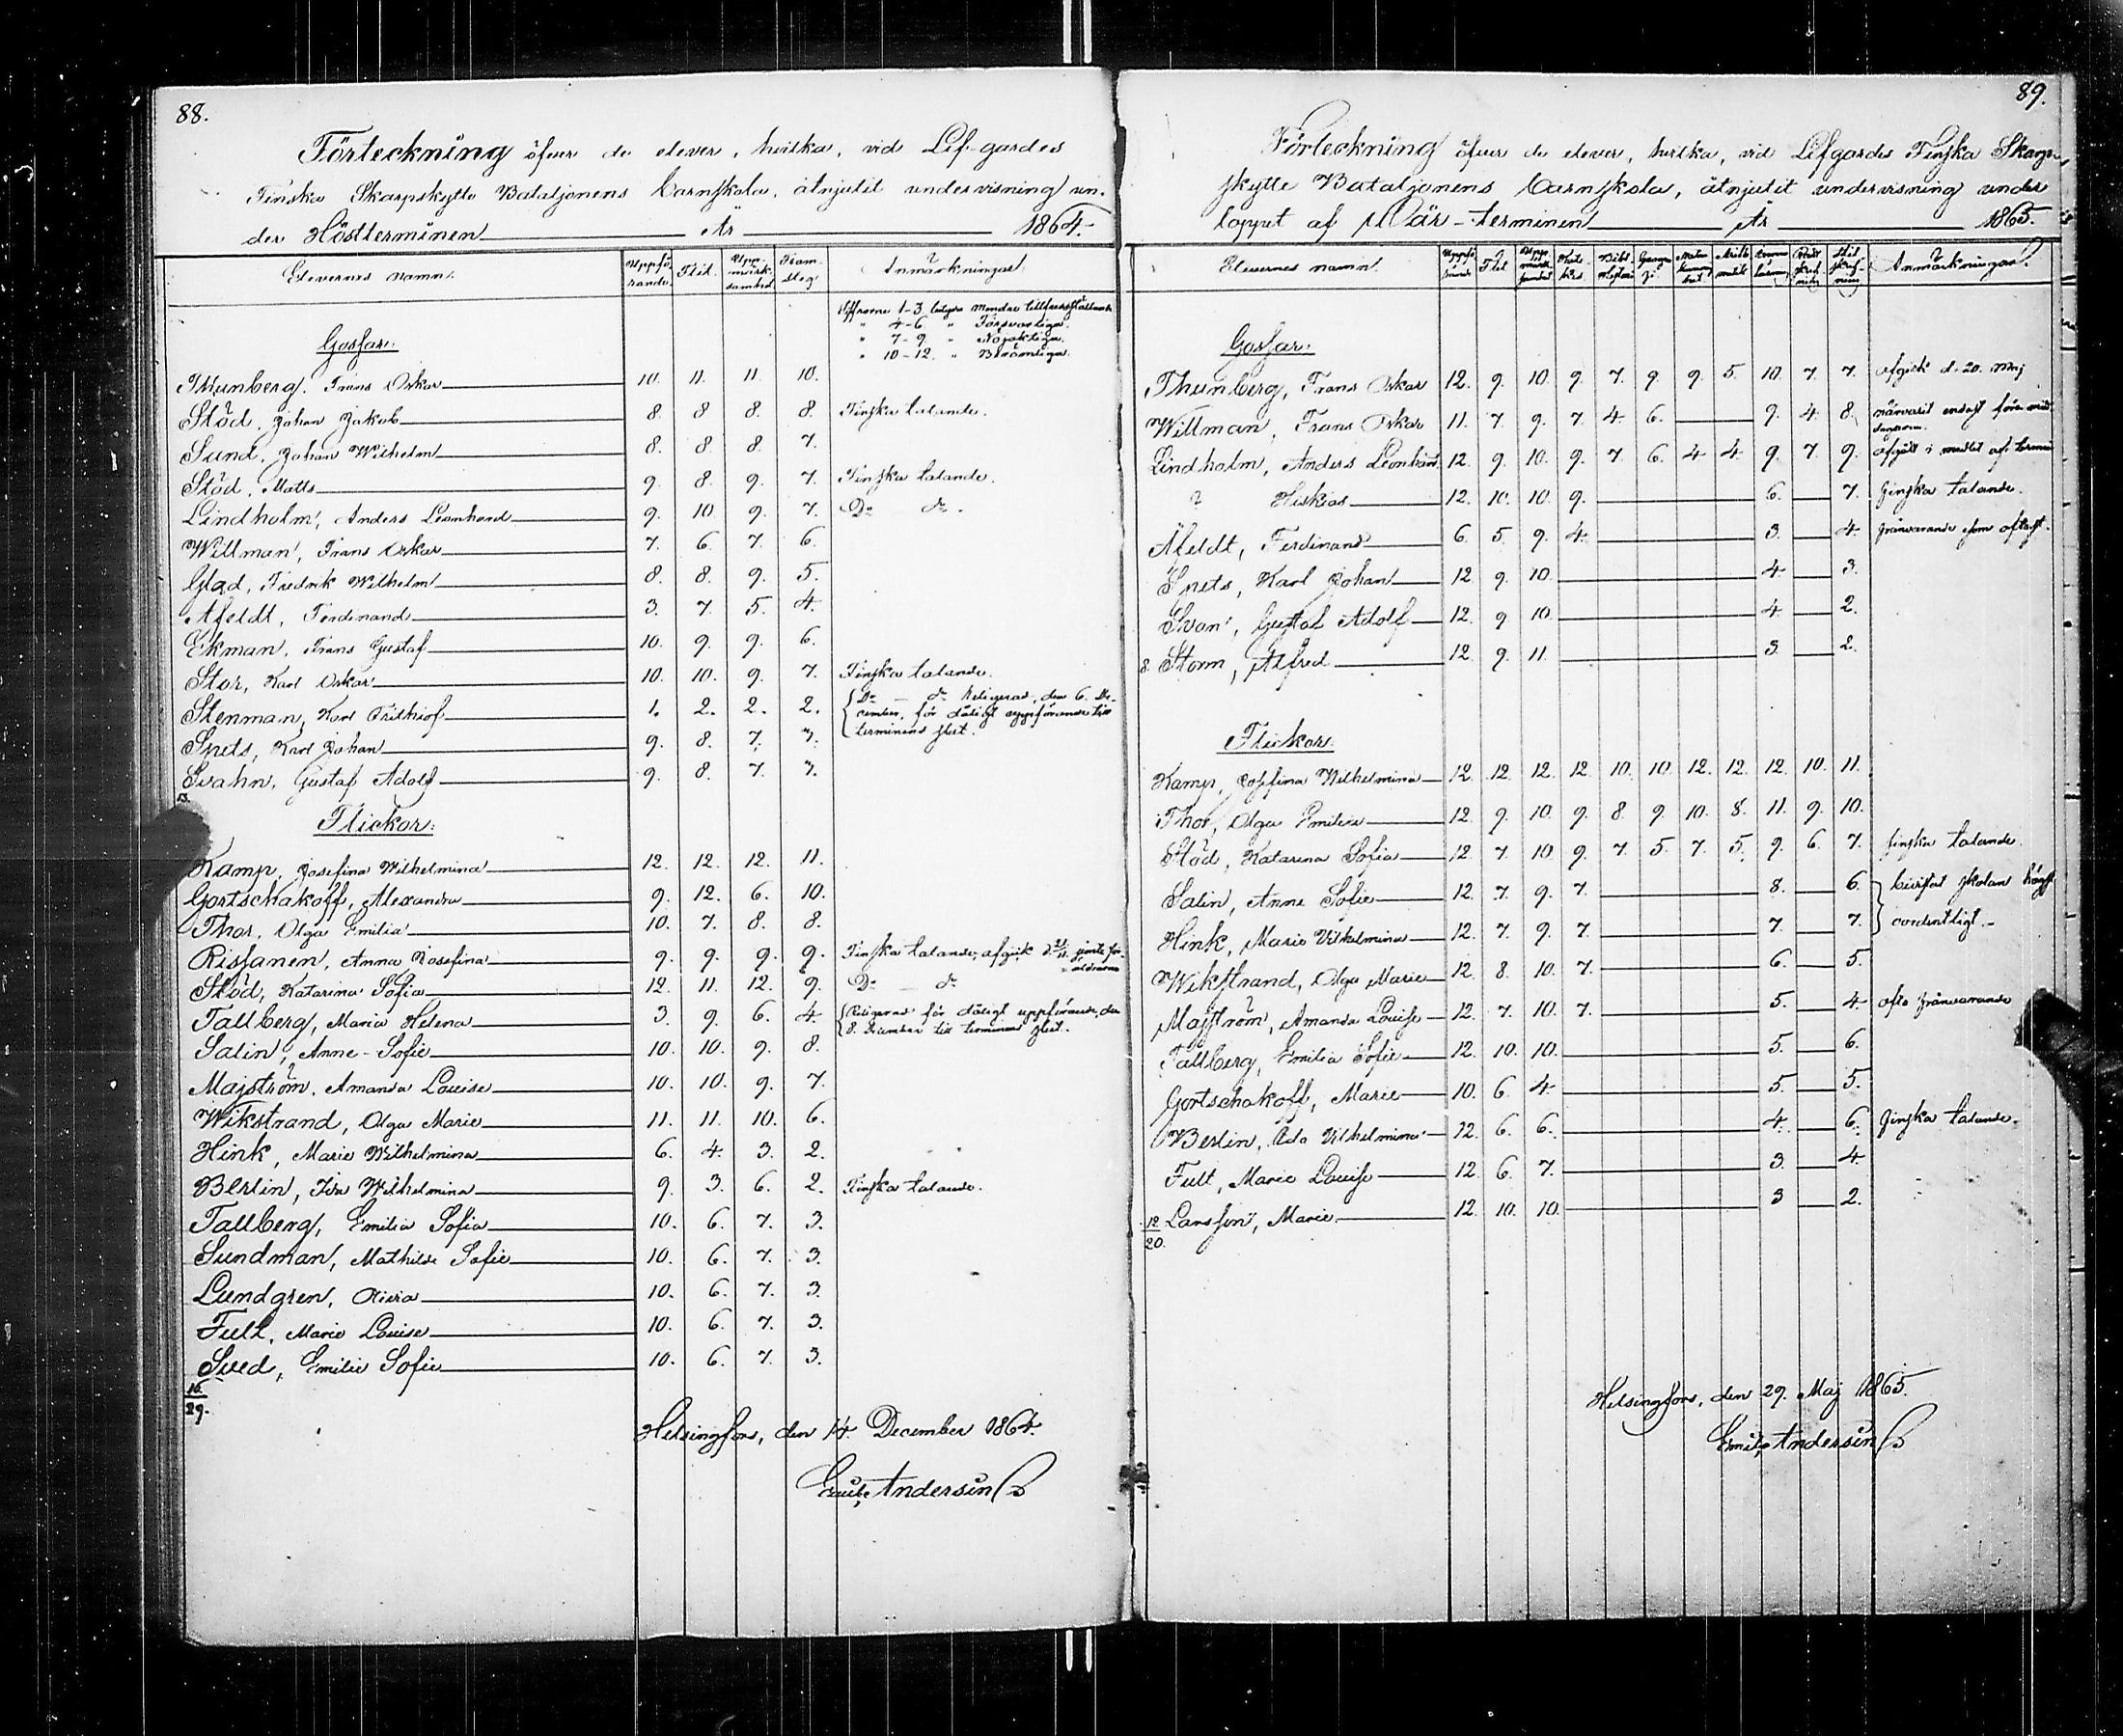 88.
Förteckning öfver de elever, hvilka, vid Lif-gardes
Finska Skarpskytte Bataljonens barnskola, åtnjutit undervisning un-
der Höstterminen År 1864.
Elevernes namn. Uppfö-rande. Flit. Upp-märk-samhet Fram-steg Anmärkningar.
Siffrorna 1-3 betyda Mindre tillfredsställande
" 4-6 " Försvarliga.
" 7-9 " Nöjaktiga.
" 10-12 " Berömliga.
Gossar:
Thunberg, Frans Oskar 10. 11. 11. 10.
Stöd, Johan Jakob 8. 8 8. 8. Finska talande.
Sund, Johan Wilhelm 8. 8. 8. 7.
Stöd, Matts 9. 8. 9. 7. Finska talande.
Lindholm, Anders Leonhard 9. 10 9. 7. Do do.
Willman, Frans Oskar 7. 6. 7. 6.
Glad, Fredrik Wilhelm 8. 8. 9. 5.
Afeldt, Ferdinand 3. 7. 5. 4.
Ekman, Frans Gustaf 10. 9. 9. 6.
Stor, Karl Oskar 10. 10. 9. 7. Finska talande.
Stenman, Karl Frithiof 1. 2. 2. 2. Do — do. Religerad, den 6. De-
cember, för dåligt uppförande till
terminens slut.
Snets, Karl Johan 9. 8. 7. 7.
Svahn, Gustaf Adolf 9. 8. 7. 7.
13.
Flickor:
Kamp, Josefina Wilhelmina 12. 12. 12. 11.
Gortschakoff, Alexandra 9. 12. 6. 10.
Thor, Olga Emilia 10. 7. 8. 8.
Rissanen, Anna Josefina 9. 9. 9. 9. Finska talande, afgick d. 21/11 jemte för-
äldrarne
Stöd, Katarina Sofia 12. 11. 12. 9. Do — do
Tallberg, Maria Helena 3. 9. 6. 4. Religerad för dåligt uppförande, den
8. December till terminens slut.
Salin, Anne-Sofie 10. 10. 9. 8.
Majström, Amanda Louise 10. 10. 9. 7.
Wikstrand, Olga Marie 11. 11. 10. 6.
Hink, Marie Wilhelmina 6. 4. 3. 2.
Berlin, Ida Wilhelmina 9. 3. 6. 2. Finska talande.
Tallberg, Emilia Sofia 10. 6. 7. 3.
Sundman, Mathilda Sofie 10. 6. 7. 3.
Lundgren, Olivia 10. 6. 7. 3.
Fult, Marie Louise 10. 6. 7. 3.
Sved, Emilie Sofie 10. 6. 7. 3.
16.
29.
Helsingfors, den 14. December 1864.
Emile Andersin
89.
Förteckning öfver de elever, hvilka, vid Lifgardes Finska Skarp-
skytte Bataljonens barnskola, åtnjutit undervisning under
loppet af Vår-terminen År 1865.
Elevernes namn. Uppfö-rande Flit Upp-märk-samhet Kate-kes. Bibl. historia Geogra-fi. Arith-metik Rätt-skrif-ning Stil skrif-ning Anmärkningar.
Gossar:
Thunberg, Frans Oskar 12. 9. 10. 9. 7. 9. 9. 5. 10. 7. 7. afgick d. 20. Maj
Willman, Frans Oskar 11. 7. 9. 7. 4. 6. 9. 4. 8. närvarit endast före mid-
dagarna.
Lindholm, Anders Leonhard 12. 9. 10. 9. 7. 6. 4. 4. 9. 7. 9. afgått i medlet af termin
? Hiskias 12. 10. 10. 9. 6. 7. finska talande.
Afeldt, Ferdinand 6. 5. 9. 4. 3. 4. frånvarande som oftast.
Snets, Karl Johan 12 9. 10. 4. 3.
Svan, Gustaf Adolf 12. 9 10. 4. 2.
8. Storm, Alfred 12. 9. 11. 3. 2.
Flickor:
Kamp, Josefina Wilhelmina 12. 12. 12. 12. 10. 10. 12. 12. 12. 10. 11.
Thor, Olga Emilia 12. 9. 10. 9. 8. 9. 10. 8. 11. 9. 10.
Stöd, Katarina Sofia 12. 7. 10. 9. 7. 5. 7. 5. 9. 6. 7. finska talande.
Salin, Anne Sofie 12. 7. 9. 7. 8. 6. bevistat skolan högst
Hink, Marie Vilhelmina 12. 7. 9. 7. 7. 7. oordentligt.
Wikstrand, Olga Marie 12. 8. 10. 7. 6. 5.
Majström, Amanda Louise 12. 7. 10. 7. 5. 4. ofta frånvarande
Tallberg, Emilia Sofie 12. 10. 10. 5. 6.
Gortschakoff, Marie 10. 6. 4. 5. 5.
Berlin, Ida Vilhelmina 12. 6. 6. 4. 6. finska talande.
Fult, Marie Louise 12. 6. 7. 3. 4.
12 Larsson, Marie 12. 10. 10. 3 2.
20.
Helsingfors, den 29. Maj 1865.
Emile Andersin